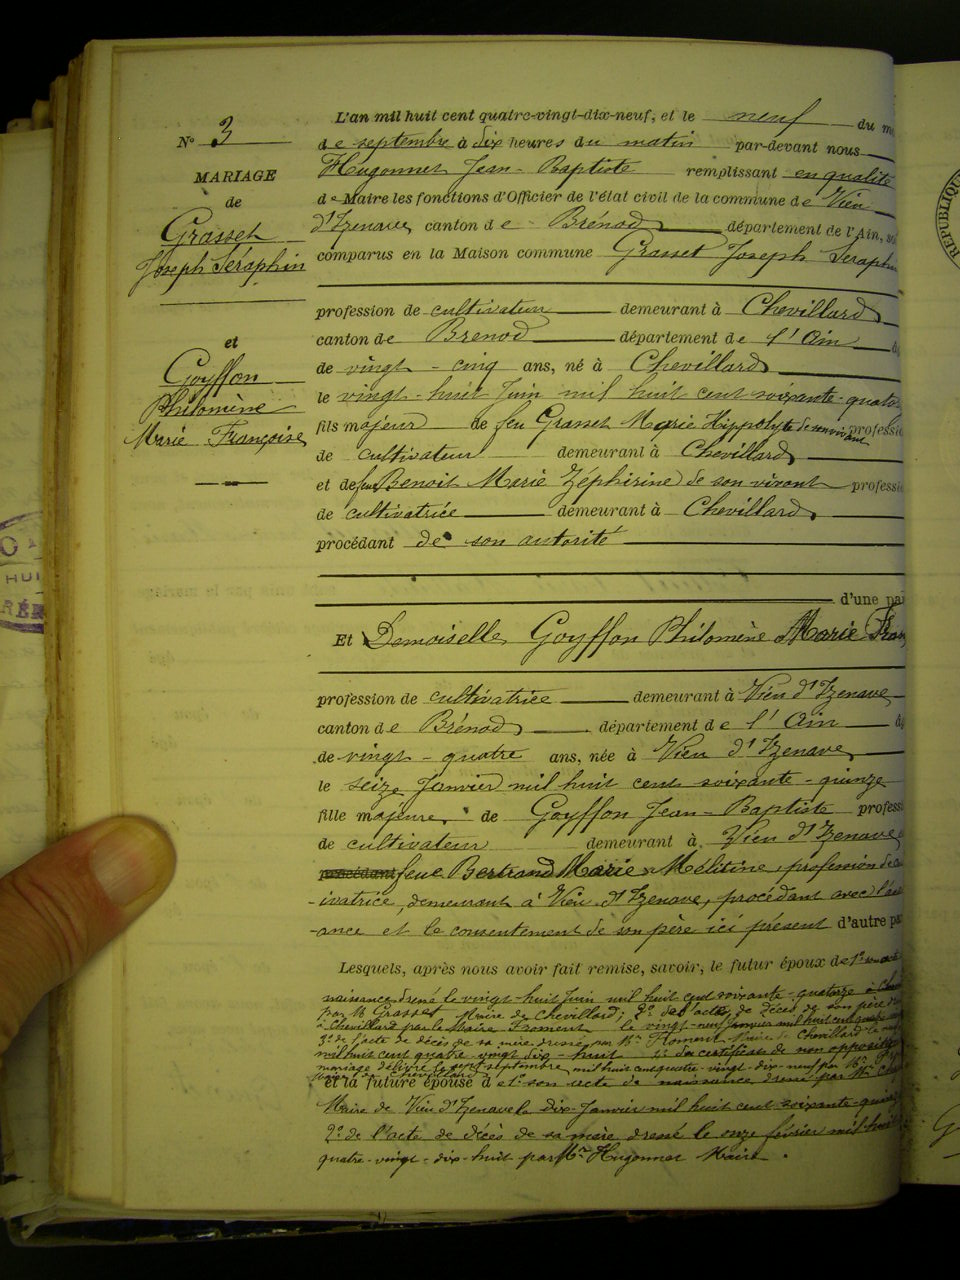 N° 3
MARIAGE
de
Grasset
Joseph Séraphin
et
Goyffon
Philomène
Marie Françoise
L'an mil huit cent quatre-vingt-dix-neuf, et le neuf du m
de septembre à dix heures du matin par-devant nous
Hugonnet Jean-Baptiste remplissant en qualité
de Maire les fonctions d'Officier de l'état civil de la commune de Vieu
d'Izenave, canton de Brénod département de l'Ain, so
comparus en la Maison commune Grasset Joseph Séraph
profession de cultivateur demeurant à Chevillard
canton de Brenod département de l'Ain
de vingt-cinq ans, né à Chevillard
le vingt-huit Juin mil huit cent soixante-quato
fils majeur de feu Grasset Marie Hippolyte de son vivant professi
de cultivateur demeurant à Chevillard
et de feue Benoit Marie Zéphirine de son vivant professi
de cultivatrice demeurant à Chevillard
procédant de son autorité
d'une pa
Et Demoiselle Goyffon Philomène Marie Fran
profession de cultivatrice demeurant à Vieu d'Izenave
canton de Brénod département de l'Ain
de vingt-quatre ans, née à Vieu d'Izenave
le seize Janvier mil huit cent soixante-quinze
fille majeure de Goyffon Jean-Baptiste profess
de cultivateur demeurant à Vieu d'Izenave
procédant feue Bertrand Marie Mélitine, profession de
ivatrice, demeurant à Vieu d'Izenave, procédant avec l'
ance et le consentement de son père ici présent d'autre pa
Lesquels, après nous avoir fait remise, savoir, le futur époux de 1° son acte
naissance dressé le vingt-huit Juin mil huit cent soixante-quatorze à
par Mr Grasset Maire de Chevillard; 2° de l'acte de décès de son père
à Chevillard par le Maire Froment le vingt-neuf Janvier mil huit cent
3° de l'acte de décès de sa mère dressé par Mr Froment Maire Chevillard le
mil huit cent quatre-vingt dix-huit du certificat de non opposition
mariage délivré le septembre mil huit cent quatre-vingt-dix-neuf par Mr
Maire de Chevillard
et la future épouse à 1° son acte de naissance dressé par Mr
Maire de Vieu d'Izenave le dix Janvier mil huit cent soixante-quinze
2° de l'acte de décès de sa mère dressé le onze février mil huit
quatre-vingt-dix-huit par Mr Hugonnet Maire.